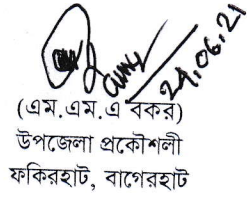 ২৭.০৬.২১
(এম.এম.এ বকর)
উপজেলা প্রকৌশলী
ফকিরহাট, বাগেরহাট